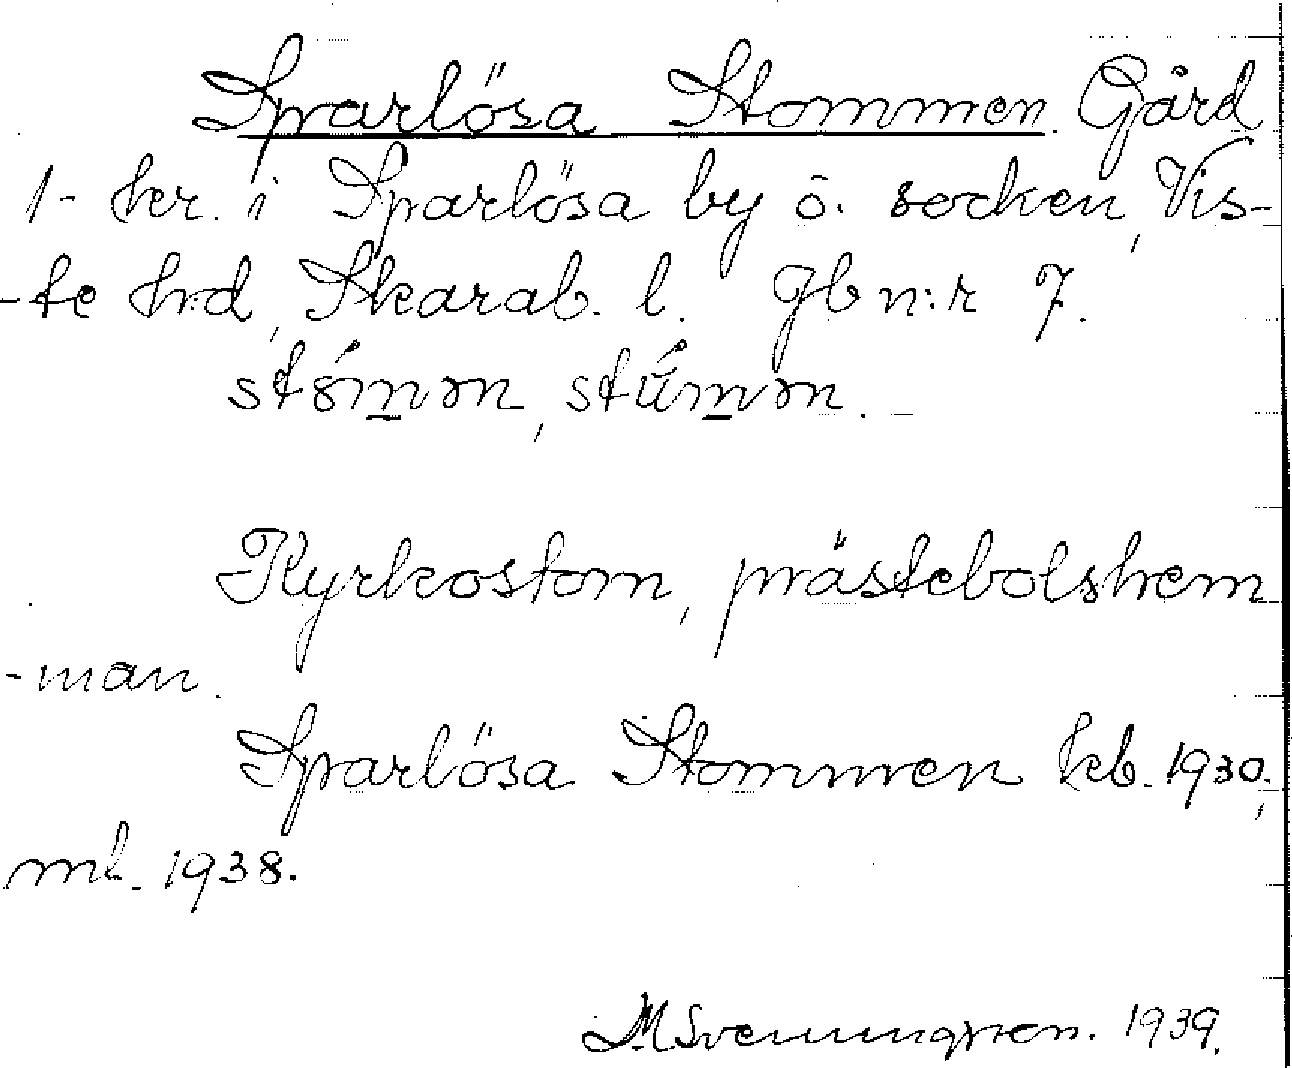 Sparlösa Stommen. Gård
1- hr. i Sparlösa by o. socken, Vis-
-te hrd, Skarab. l. Jb n:r 7.
Kyrkostom, prästebolshem
-man.
Sparlösa Stommen kb. 1930,
ml. 1938.
M Svenungsson. 1939.